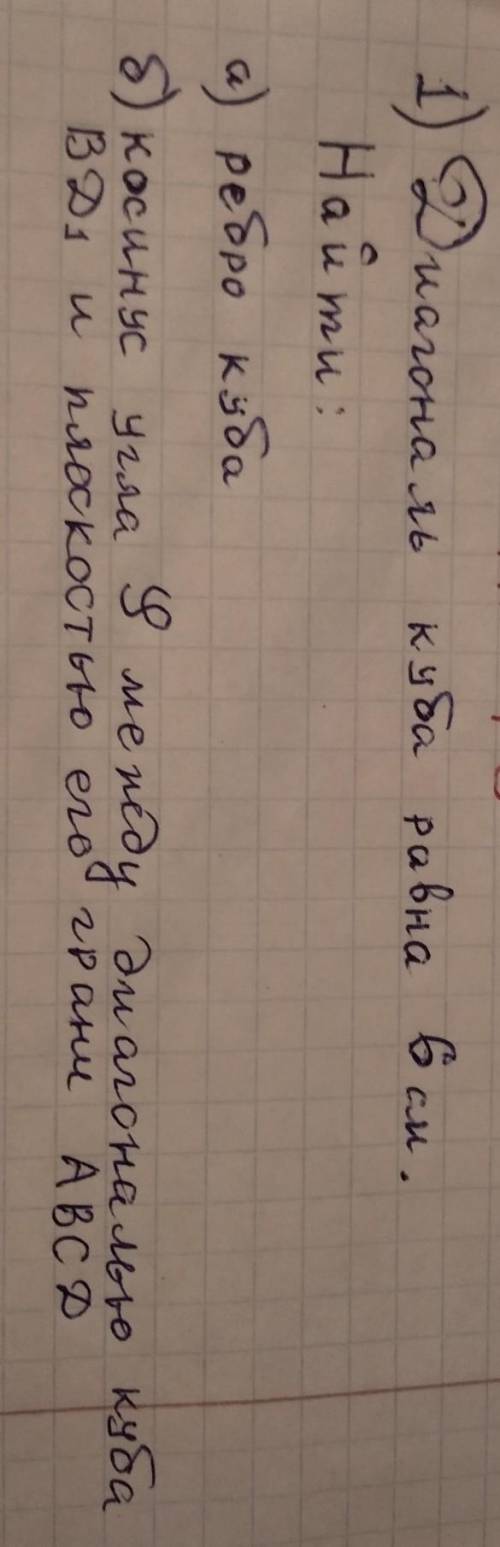 1) Диагональ куба равна 6 см.
Найти:
а) ребро куба
б) косинус угла φ между диагональю куба
BD₁ и плоскостью его грани ABCD